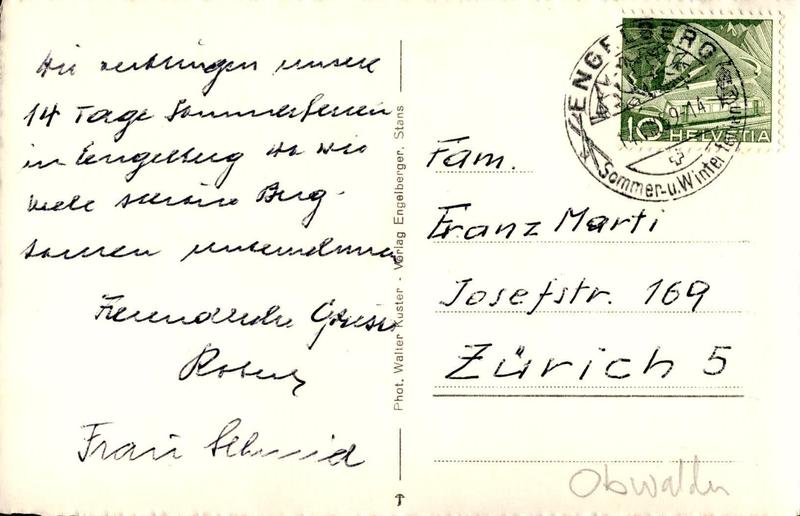 Wir verbringen unsere
14 Tage Sommerferien
in Engelberg wo wir
viele schöne Berg-
touren unternehmen
Freundliche Grüsse
Frau Schmid
Phot. Walter Küster - Verlag Engelberger, Stans
ENGELBERG
Sommer-u. Winter
10 HELVETIA
Fam.
Franz Marti
Josefstr. 169
Zürich 5
Obwalden